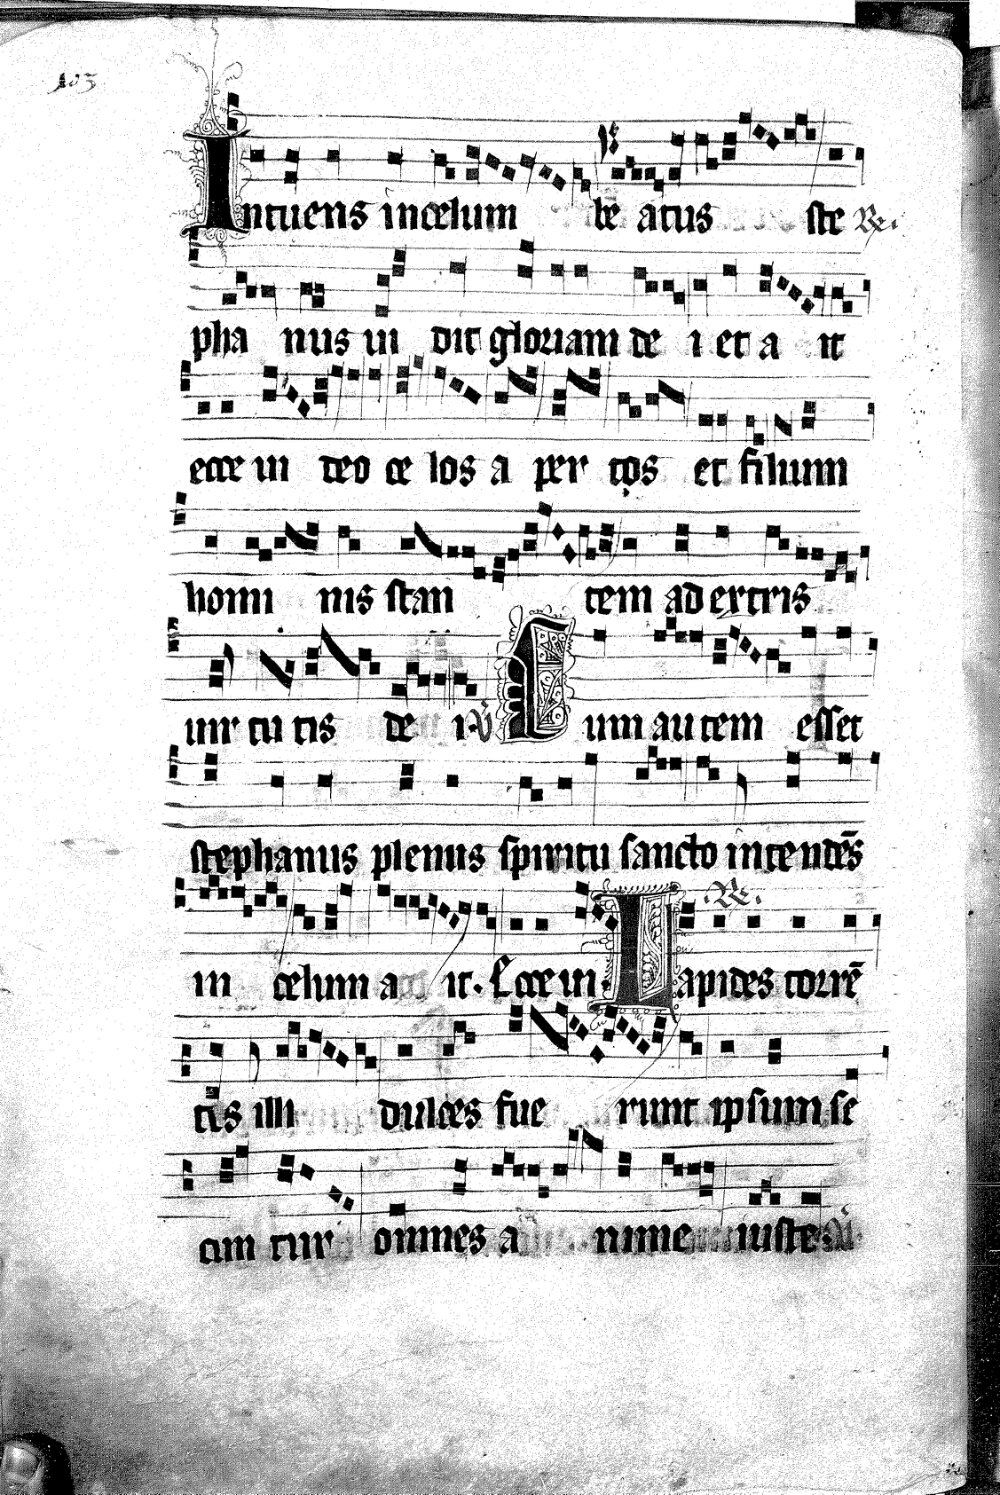 103
Intuens in celum be atus ste R.
pha nus ui dit gloriam de i et a it
ecce ui deo ce los a per tos et filium
homi nis stan tem ad extris
uir tu tis de i. V. Cum au tem esset
stephanus plenus spiritu sancto intendēs
in celum a it. Ecce ui R. Lapides torrē
tis illi dulces fue runt ipsum se
cun tur omnes a nime iuste. V.